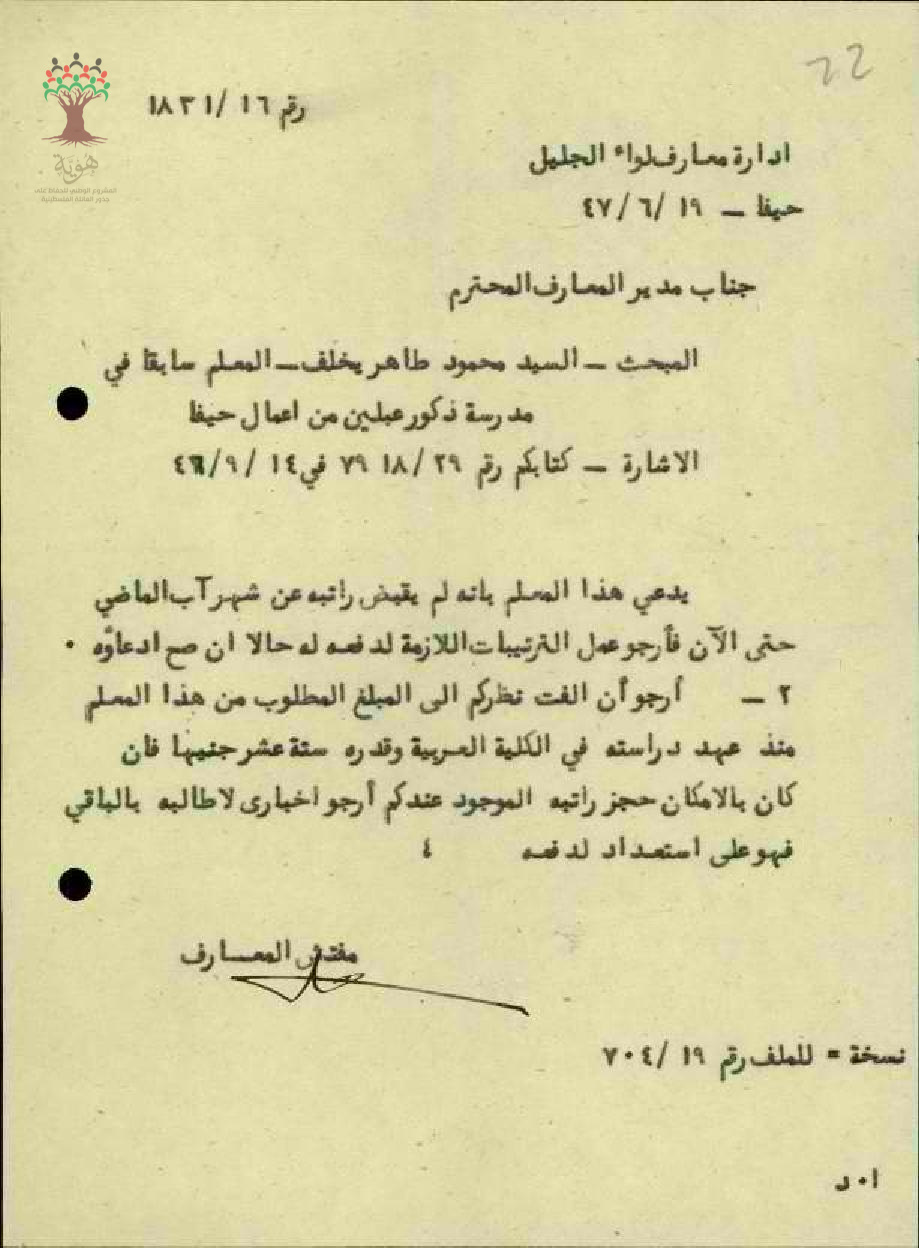 22
هوية
المشروع الوطني للحفاظ على
جذور العائلة الفلسطينية
رقم ١٦ /١٨٣١
ادارة معارف لواء الجليل
حيفا – ١٩ /٦ /٤٧
جناب مدير المعارف المحترم
المبحث – السيد محمود طاهر يخلف – المعلم سابقا في
مدرسة ذكور عبلين من اعمال حيفا
الاشارة – كتابكم رقم ٢٩/ ١٨ ٧٩ في ١٤ /٩ /٤٦
يدعي هذا المعلم بانه لم يقبض راتبه عن شهر آب الماضي
حتى الآن فأرجو عمل الترتيبات اللازمة لدفعه له حالا ان صح ادعاؤه ٠
٢ – أرجو أن الفت نظركم الى المبلغ المطلوب من هذا المعلم
منذ عهد دراسته في الكلية العربية وقدره ستة عشر جنيها فان
كان بالامكان حجز راتبه الموجود عندكم أرجو اخبارى لاطالبه بالباقي
فهو على استعداد لدفعه ٤
مفتش المعارف
نسخة = للملف رقم ١٩ /٧٠٤
ا ٠ د